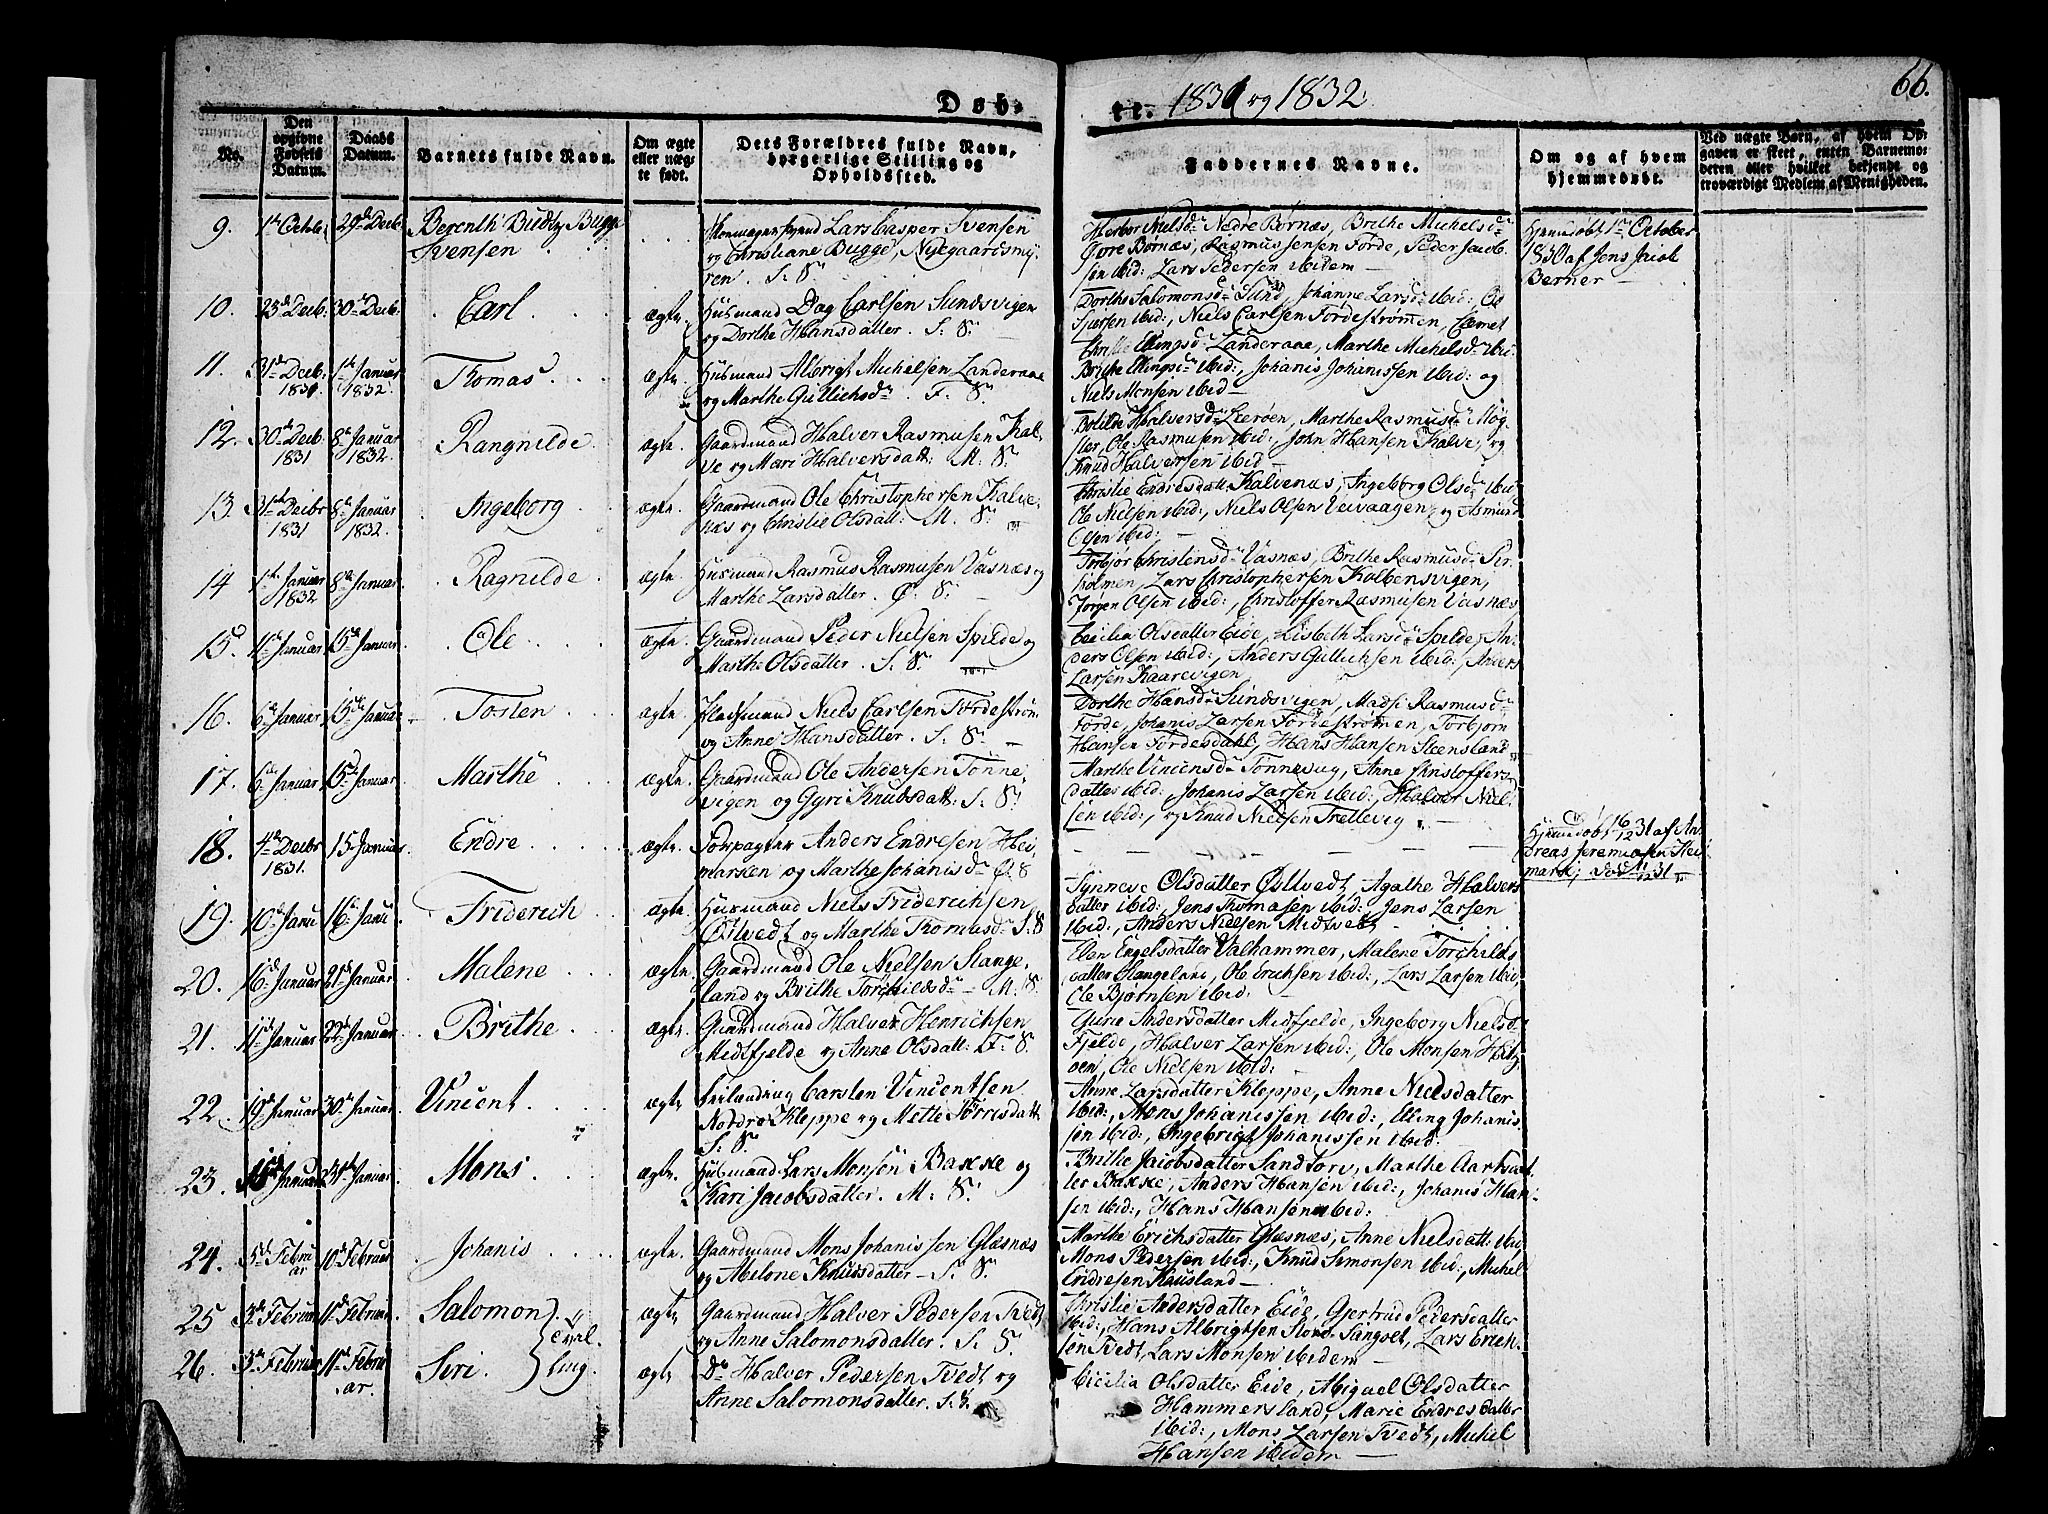 Døb-
te. 1831 og 1832.
66.
No.
Den
opgivne
Fødsels
Datum.
Daabs
Datum.
Barnets fulde Navn.
Om ægte
eller uæg-
te født.
Dets Forældres fulde Navn,
borgerlige Stilling og
Opholdssted.
Faddernes Navne.
Om og af hvem
hjemmedøbt.
Ved uægte Børn, af hvem Op-
gaven er skeet, enten Barnemo-
deren eller hvilket bekjendt og
troværdigt Medlem af Menigheden.
9. 29de Decb. Berenth Budtz Bugge
Svensen
Lars Casper Svensen
og Christiane Bugge, Nyegaardsmy-
ren. S: S:
Herbor Nielsd: Nedre Børnæs, Brithe Michelsd:
Øvre Børnæs, Rasmus Jensen Førde, Peder Jacob-
sen ibid:, Lars Pedersen ibidem
Hjemmedøbt 1ste October
1830 af Jens Jacob
Berner
10. 23de Decb. 30te Decb. Carl ægte. Husmand Dag Carlsen Sundsvigen
og Dorthe Hansdatter. S: S:
Dorthe Salomonsd: Sund, Johanne Larsd: ibid:
ibid:, Niels Carlsen Førdestrømen,
11. 31te Decb. 1831. 1ste Januar 1832. Thomas ægte. Husmand Albrigt Michelsen Landeraae
og Marthe Gullichsd: F. S:
Christie Ellingsd: Landeraae, Marthe Michelsd: ibid:
Brithe Ellingsd: ibid:, Johanis Johanissen ibid: og
Niels Monsen ibid
12. 30te Decb. 1831 8de Januar 1832. Rangnilde ægte. Gaardmand Halver Rasmusen Kal-
ve og Mari Halversdatt: M. S:
Bolilde Halversd: Lerøen, Marthe Rasmusd: Møg-
ster, Ole Rasmusen ibid:, John Hansen Kalve, og
Knud Halversen ibid
13. 31te Decbr 1831 8de Januar 1832. Ingeborg ægte. Gaardmand Ole Christophersen Kalve-
næs og Christie Olsdatt: M. S:
Christie Endresdatt: Kalvenæs, Ingeborg Olsd: ibid:
Ole Nielsen ibid:, Niels Olsen Veivaagen, og Asmund
Olsen ibid:
14 1ste Januar 1832 8de Januar Ragnilde ægte. Husmand Rasmus Rasmusen Vasnæs og
Marthe Larsdatter. Ø: S:
Torbjør Christensd: Vasnæs, Brithe Rasmusd:
holmen, Lars Christophersen Kolbensvigen,
Jørgen Olsen ibid:, Christoffer Rasmusen Vasnæs
15. 15de Januar Ole ægte. Gaardmand Peder Nielsen Spilde og
Marthe Olsdatter. S: S:
Cecilia Olsdatter Eide, Lisbeth Larsd: Spilde, An-
ders Olsen ibid:, Anders Gullichsen ibid:, Anders
Larsen Kaarevigen
16. 6te Januar 15de Januar Tosten ægte. Pladsmand Niels Carlsen Førdestrøm
og Anne Hansdatter. S: S:
Dorthe Hansd: Sundsvigen, Madsi Rasmusd:
Førde, Johanis Larsen Førdestrømen, Torbjørn
Hansen Førdesdahl, Hans Hansen Steensland
17. 6te Januar 15de Januar Marthe ægte. Gaardmand Ole Andersen Tønne-
vigen og Gyri Knudsdatt: S: S:
Marthe Vincensd: Tønnevig, Anne Christoffers-
datter ibid:, Johanis Larsen ibid:, Halver Niel-
sen ibid:, og Knud Nielsen Trettevig
18. 4de Decbr 1831. 15 Januar Endre ægte. Forpagter Anders Endresen Hei-
marken og Marthe Johanisd: Ø: S
Hjemmedøbt 16/12 31 af An-
dreas Jeremiasen Hei-
mark; død 31
19. 10de Janu 16de Janu. Friderich ægte. Husmand Niels Friderichsen
Østvedt og Marthe Thomasd: S: S
Synneve Olsdatter Østvedt, Agathe Halvers
datter ibid:, Jens Thomasen ibid:, Jens Larsen
ibid:, Anders Nielsen Midtvedt
20. 16de Januar 21de Januar Malene ægte. Gaardmand Ole Nielsen Stange-
land og Brithe Torchildsd: M. S.
Elen Engelsdatter Valhammer, Malene Torchilds
datter Stangeland, Ole Erichsen ibid:, Lars Larsen ibid:,
Ole Bjørnsen ibid:
21. 11de Januar 22de Januar Brithe ægte. Gaardmand Halver Henrichsen
Midtfjelde og Anne Olsdatt: F: S:
Gurie Andersdatter Midfjelde, Ingeborg Nielsd
Fjelde, Halver Larsen ibid:, Ole Monsen
Ole Nielsen ibid:
22. 19de Januar 30te Januar Vincent ægte Carsten Vincentsen
Nordre Kleppe og Mette Tørrisdatt
S: S:
Anne Larsdatter Kleppe, Anne Nielsdatter
ibid:, Mons Johanissen ibid:, Elling Johanis-
sen ibid:, Ingebrigt Johanissen ibid:
23. Januar 31te Januar Mons ægte. Husmand Lars Monsen Bakke og
Kari Jacobsdatter. M: S:
Brithe Jacobsdatter Sandtorv, Marthe Aarts dat-
ter Bakke, Anders Hansen ibid:, Johanis Han-
sen ibid:, Hans Hansen ibid:
24. 5de Febru
ar 10de Februar Johanis ægte. Gaardmand Mons Johanissen Glæsnæs
og Abelone Knudsdatter S: S:
Marthe Erichsdatter Glæsnæs, Anne Nielsdatt: ibid
Mons Pedersen ibid:, Knud Simonsen ibid:, Michel
Endresen Kausland
25 3de Februar 11de Februar Salomon ægte Gaardmand Halver Pedersen Tvedt
og Anne Salomonsdatter. S: S:
Christie Andersdatter Eide, Gjertrud Pedersdatter
ibid:, Hans Albrigtsen Store Sangolt, Lars Erich-
sen Tvedt, Lars Monsen ibidem
26. 3de Februar 11te Febru
ar. Siri. Tvil
ling. ægte Do Halver Pedersen Tvedt og
Anne Salomonsdatter. S: S.
Cicilia Olsdatter Eide, Abiguel Olsdatter
Hammersland, Marie Endresdatter
ibid:, Mons Larsen Tvedt, Michel
Hansen ibidem